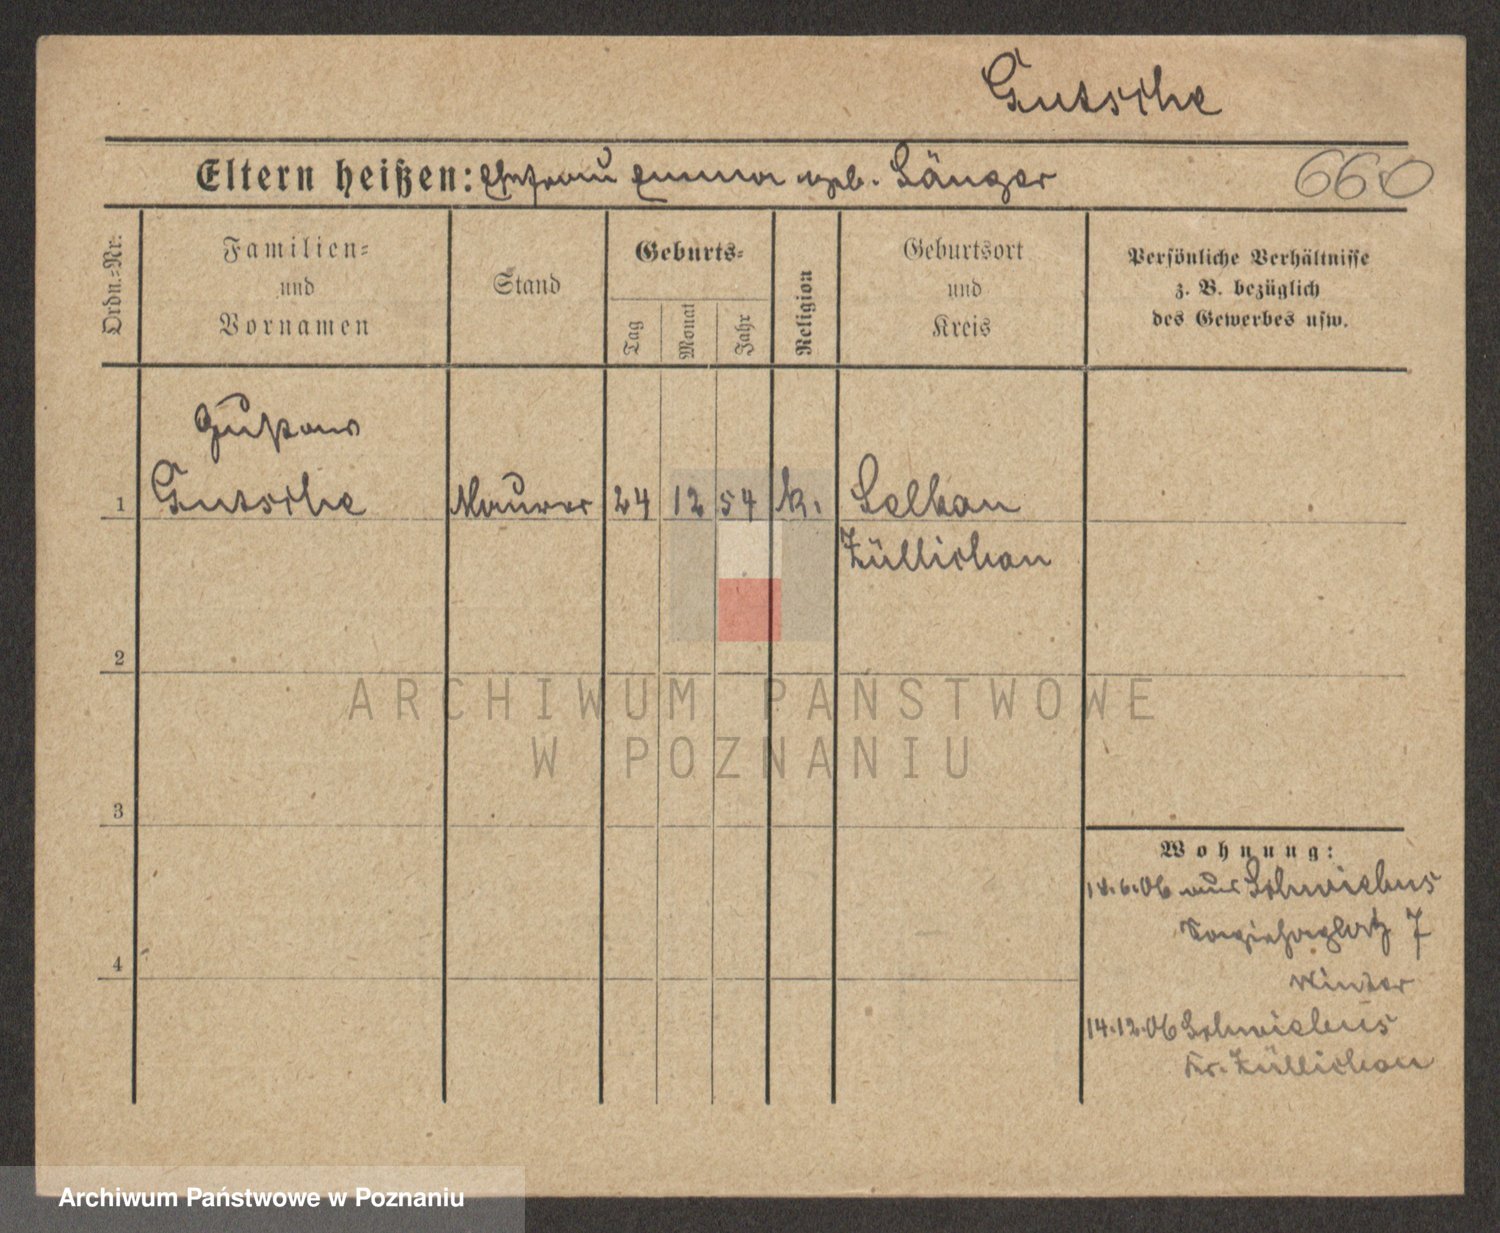 Gutsche
Eltern heißen: Ehefrau Emma geb. Sänger
660
Ordn.=Nr.
Familien=
und
Vornamen
Stand
Geburts=
Tag
Monat
Jahr
Religion
Geburtsort
und
Kreis
Persönliche Verhältnisse
z. B. bezüglich
des Gewerbes usw.
Gustav
1 Gutsche Maurer 24 12 54 k. Selkau
Züllichau
2
3
4
Wohnung:
18.6.06 aus Schwiebus
7
Winter
14.12.06 Schwiebus
Kr. Züllichau
ARCHIWUM PAŃSTWOWE
W POZNANIU
Archiwum Państwowe w Poznaniu